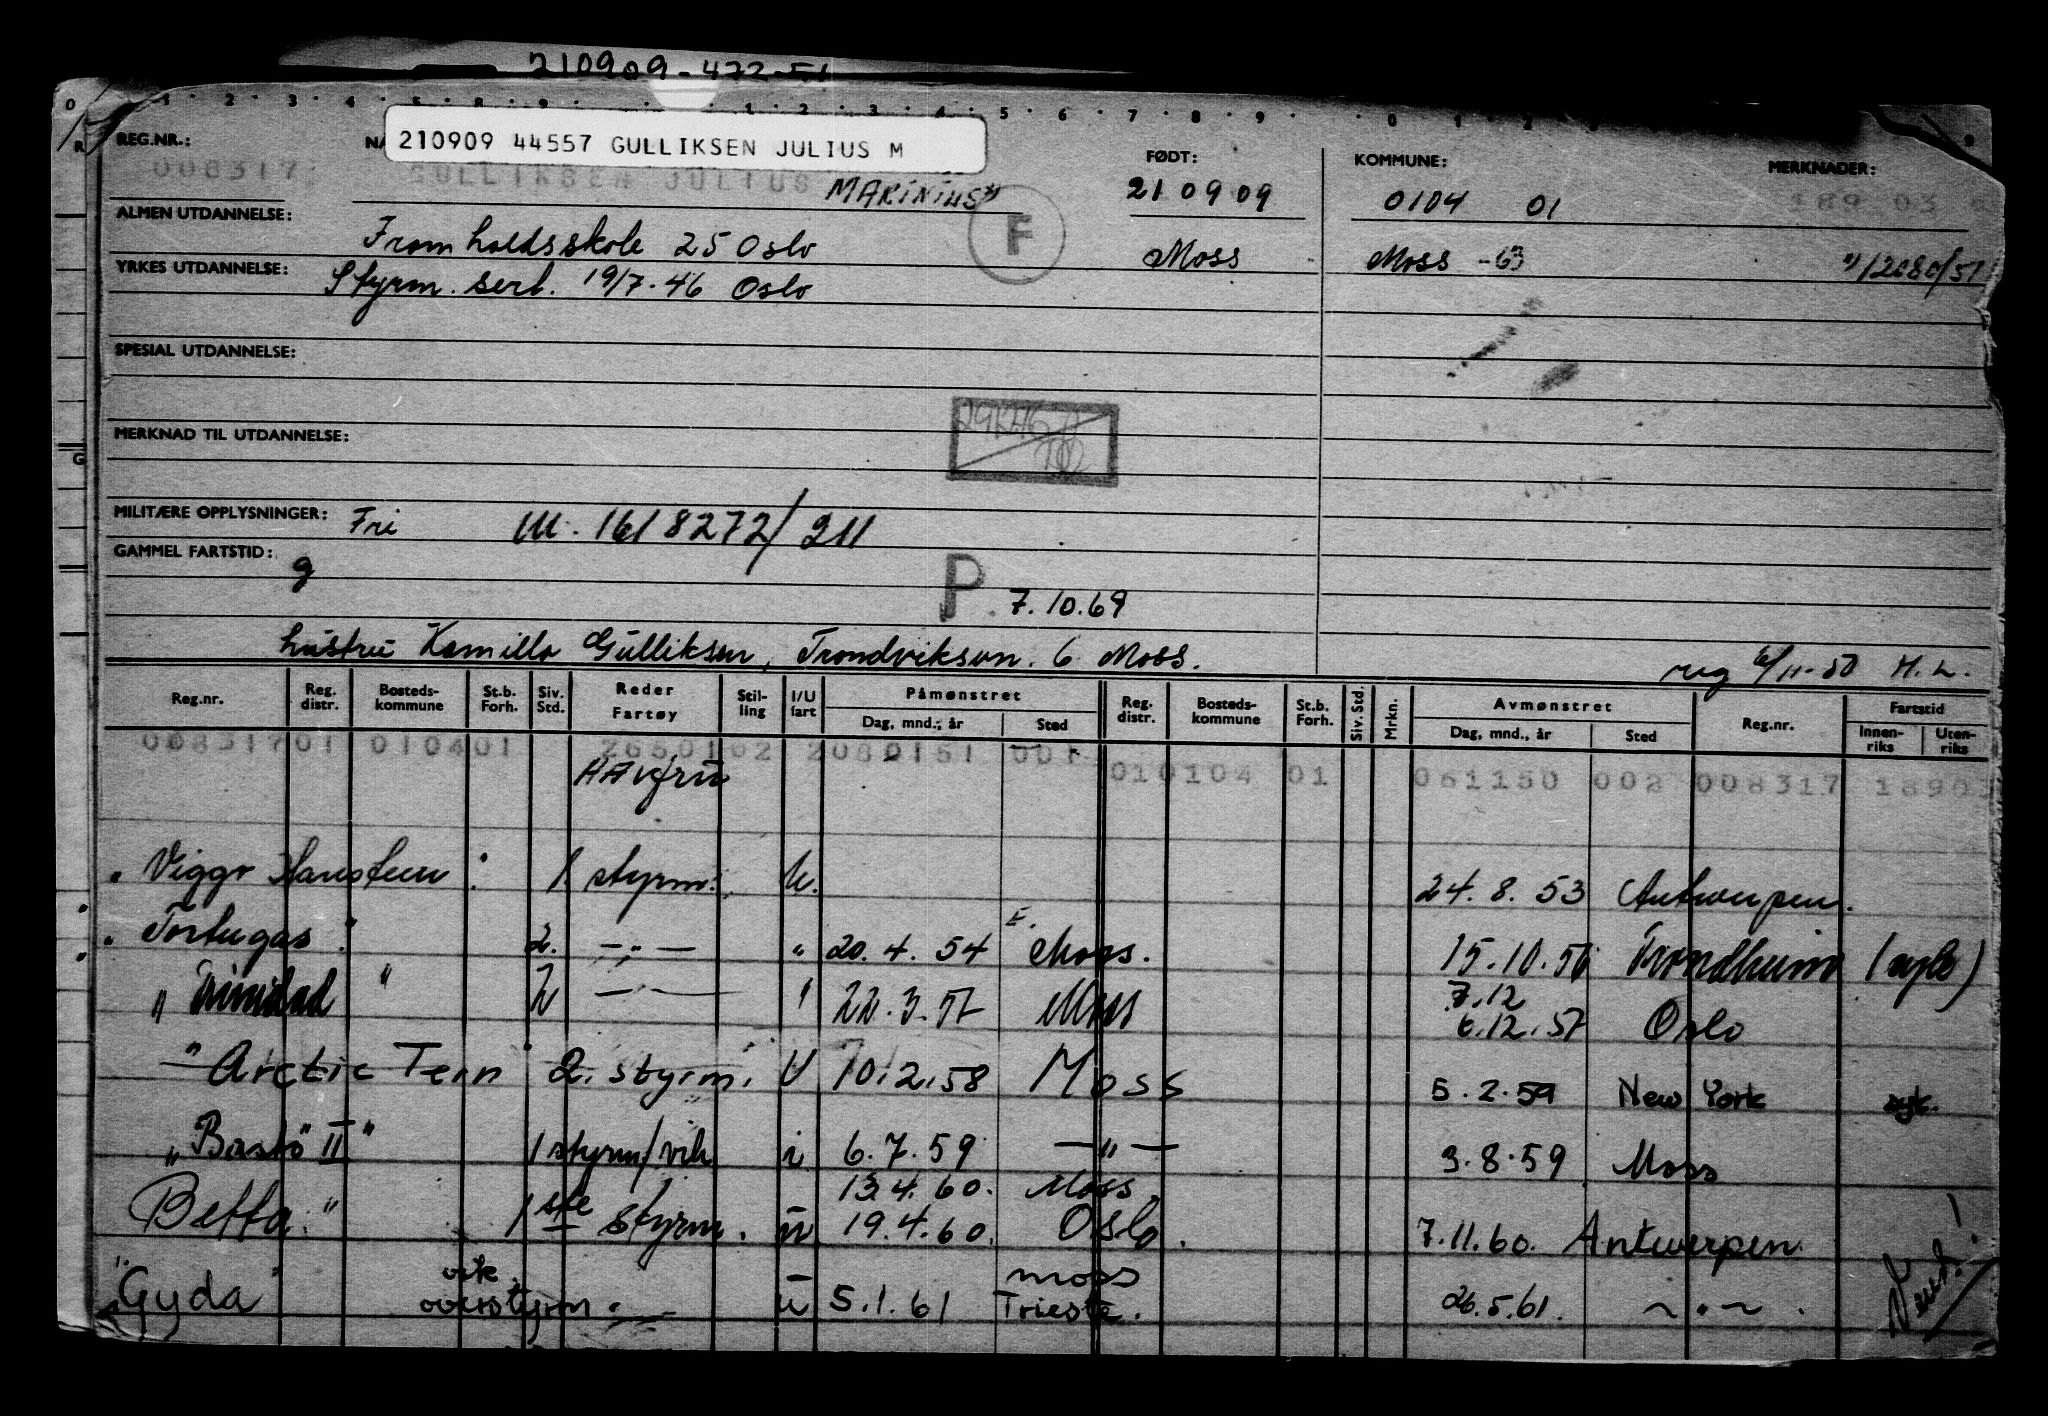 210909-472-51
210909 44557 GULLIKSEN JULIUS M
REG.NR.:
FØDT:
KOMMUNE:
MERKNADER:
008317
GULLIKSEN JULIUS
MARINIUS*)
21 09 09
0104 01
189 03
ALMEN UTDANNELSE:
Framhaldsskole 25 Oslo
F
Moss
Moss -63
*) 12080/51
YRKES UTDANNELSE:
Styrm. sert. 19/7.46 Oslo
SPESIAL UTDANNELSE:
MERKNAD TIL UTDANNELSE:
MILITÆRE OPPLYSNINGER: Fri M. 1618272/211
GAMMEL FARTSTID:
g
P 7.10.69
hustru Kamilla Gulliksen, Trondviksvn. 6 Moss.
reg 6/11-50 H.L.
Reg.nr. Reg. distr. Bosteds-kommune St.b. Forh. Siv. Std. Reder Fartøy Stil-ling I/U fart Påmønstret Dag, mnd., år Sted Reg. distr. Bosteds-kommune St.b. Forh. Siv. Std. Mrkn. Avmønstret Dag, mnd., år Sted Reg.nr. Fartstid Innen-riks Uten-riks
008317 01 0104 01 2650102 2080151 001 01 0104 01 061150 002 008317 18903
HAvfru
"Viggo Hansteen" 1 styrm. u. 24.8.53 Antwerpen.
"Tortugas" 2. —„— " 20.4.54 Moss. 15.10.56 Trondheim (syk)
"Trinidad" 2 —„— " 22.3.57 Moss 7.12
6.12.57 Oslo
"Arctic Tern" 2. styrm. U 10.2.58 Moss 5.2.59 New York syk.
"Bastø II" 1 styrm/vik i 6.7.59 —„— 3.8.59 Moss
13.4.60. Moss
Betta" 1ste styrm. u 19.4.60. Oslo. 7.11.60. Antwerpen.
"Gyda" vik. overstyrm. u 5.1.61 Moss
Trieste. 26.5.61. ~„~.